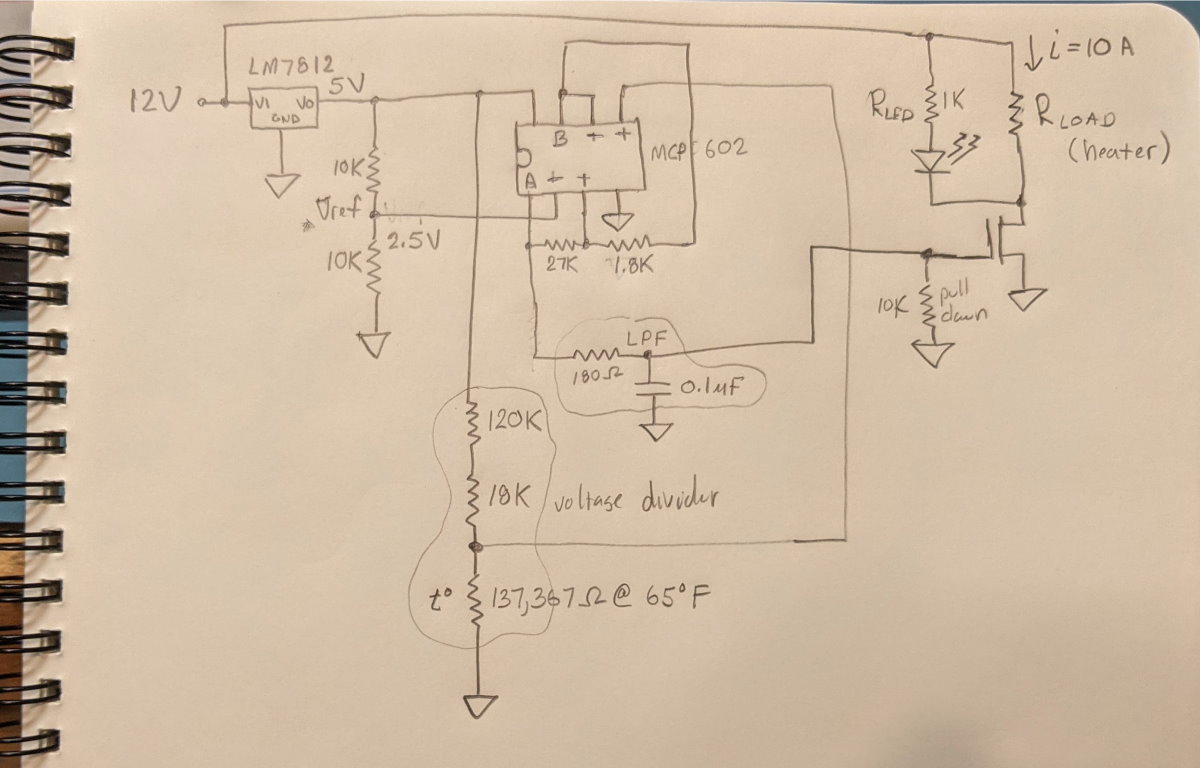 LM7812
5V
12V
VI
VO
GND
10K
* Vref
2.5V
10K
B
+
+
MCP 602
A
+
+
27K
1.8K
LPF
180Ω
0.1µF
120K
18K
voltage divider
t°
137,367Ω @ 65°F
i = 10 A
RLED
1K
RLOAD
(heater)
10K
pull
down